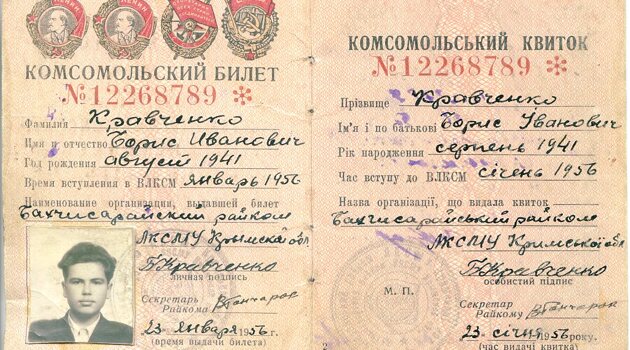 КОМСОМОЛЬСКИЙ БИЛЕТ
№12268789 *
Фамилия Кравченко
Имя и отчество Борис Иванович
Год рождения август 1941
Время вступления в ВЛКСМ январь 1956
Наименование организации, выдавшей билет
Бахчисарайский райком
ЛКСМУ Крымской обл
БКравченко
личная подпись
Секретарь
Райкома ВГончарок
23 января 1956 г.
(время выдачи билета)
КОМСОМОЛЬСЬКИЙ КВИТОК
№12268789 *
Прізвище Кравченко
Ім'я і по батькові Борис Іванович
Рік народження серпень 1941
Час вступу до ВЛКСМ січень 1956
Назва організації, що видала квиток
Бахчисарайський райком
ЛКСМУ Кримської обл
БКравченко
особистий підпис
М. П.
Секретар
Райкому ВГончарок
23 січня 1956 року.
(час видачі квитка)
2